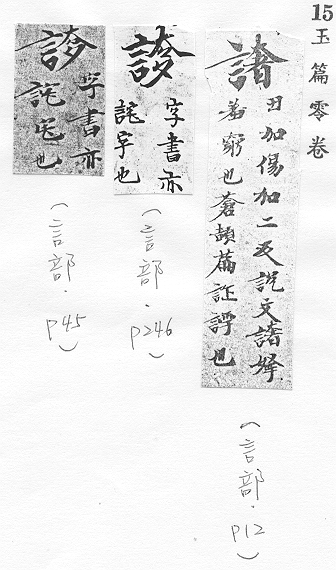 15
玉篇零卷
譇
丑加傷加二反說文譇拏
羞窮也蒼頡篇也
(言部·p12)
字書亦
詫字也
(言部·p246)
字書亦
詫也
(言部·p45)